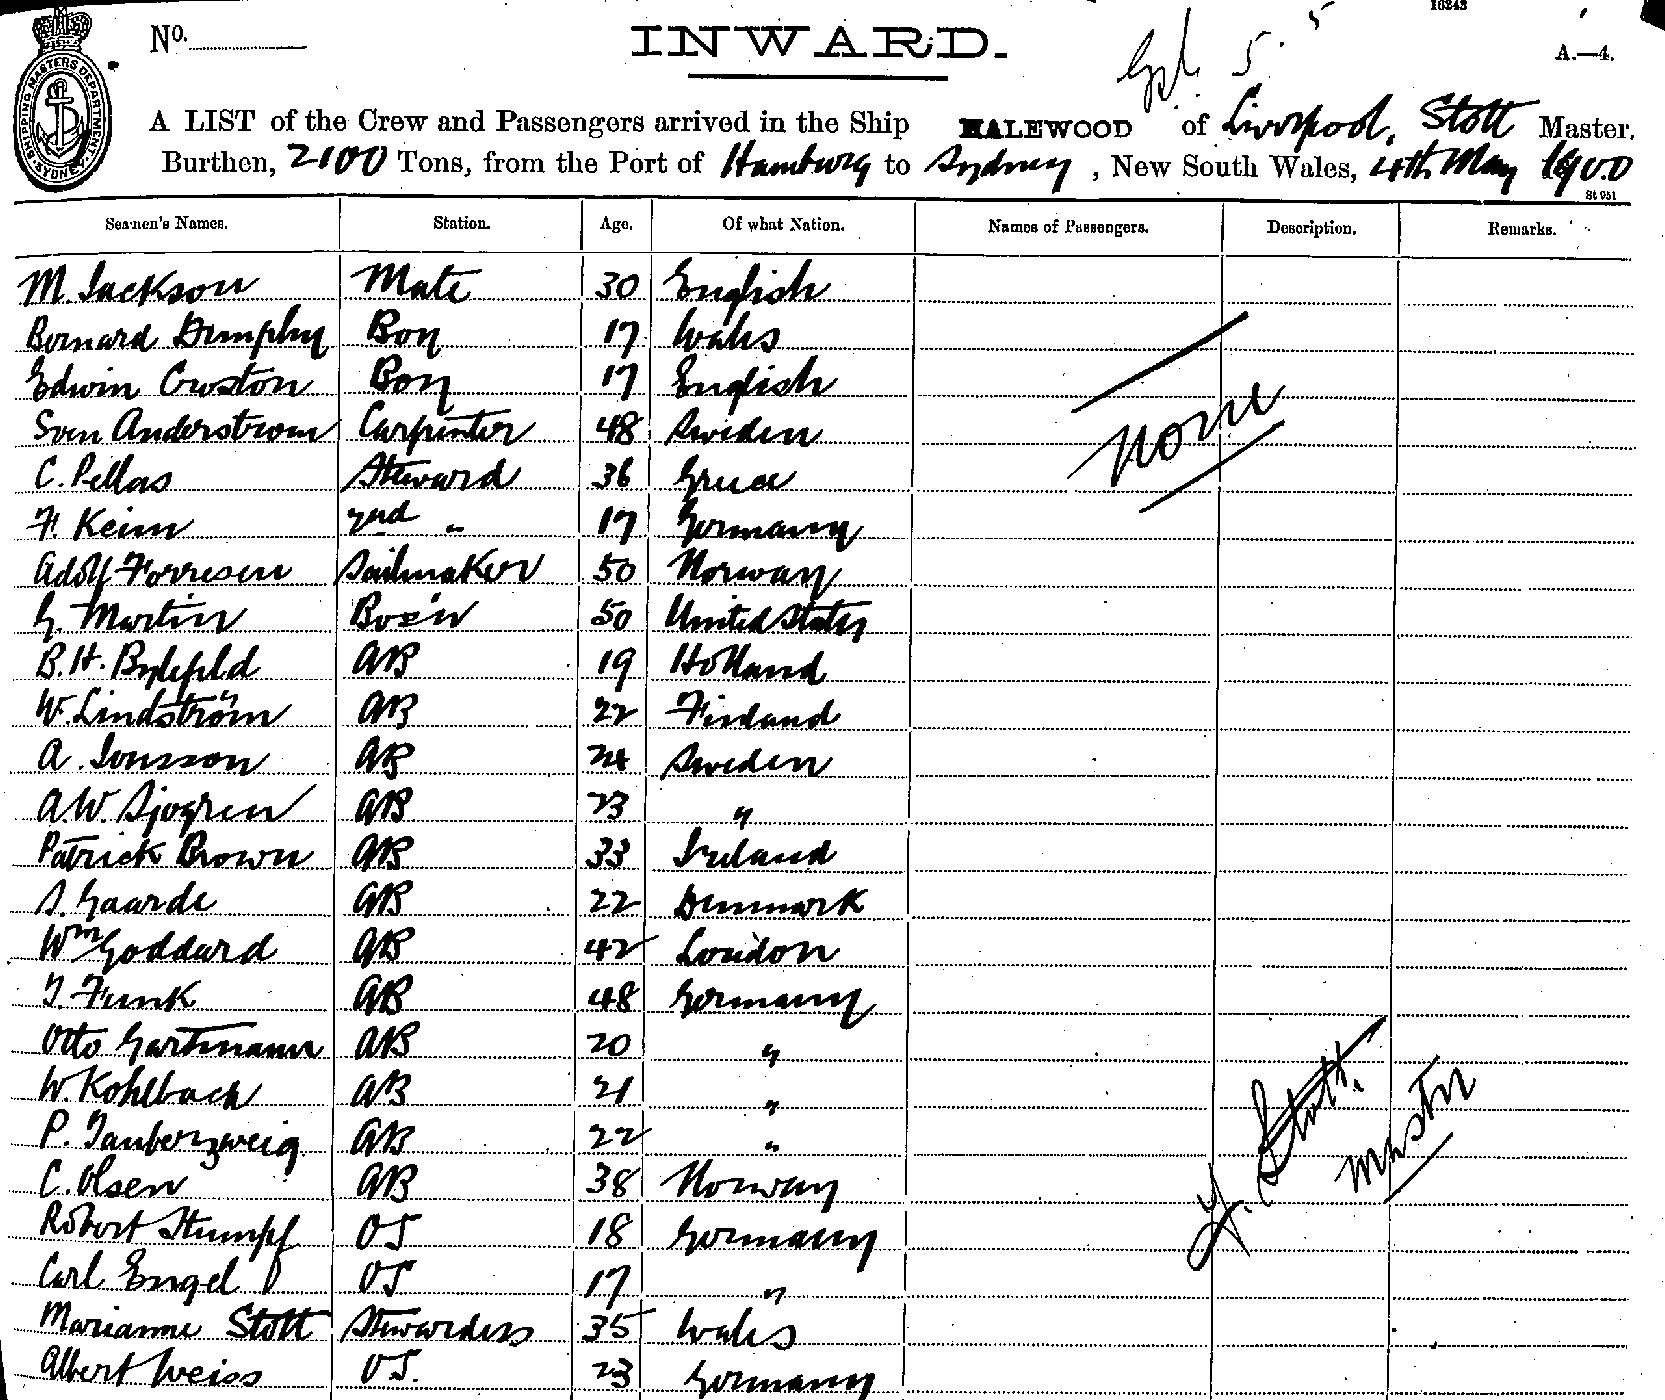 16243
No.
INWARD.
5 5
A.—4.
SHIPPING MASTERS DEPARTMENT SYDNEY
A LIST of the Crew and Passengers arrived in the Ship HALEWOOD of Liverpool, Stott Master.
Burthen, 2100 Tons, from the Port of Hamburg to Sydney, New South Wales, 4th May 1900
St 951
Seamen's Names. Station. Age. Of what Nation. Names of Passengers. Description. Remarks.
M. Jackson Mate 30 English
Bernard Dumphy Boy 17 Wales
Edwin Croston Boy 17 English
Sven Anderstrom Carpenter 48 Sweden
none
C. Pellas Steward 36 Greece
F. Keim 2nd " 17 Germany
Adolf Forresen Sailmaker 50 Norway
G. Martin Bos'n 50 United States
B. H. Bylefeld AB 19 Holland
W. Lindström AB 22 Finland
A. Jonsson AB 24 Sweden
A.W. Sjogren AB 23 "
Patrick Brown AB 33 Ireland
S. Gaarde AB 22 Denmark
Wm Goddard AB 42 London
J. Funk AB 48 Germany
Otto Gartmann AB 20 "
W. Kohlbach AB 21 "
P. Tauberzweig AB 22 "
C. Olsen AB 38 Norway
Robert Stumpf OS 18 Germany
Carl Engel OS 17 "
Marianne Stott Stewardess 35 Wales
Albert Weiss OS. 23 Germany
Y. Stott.
Master